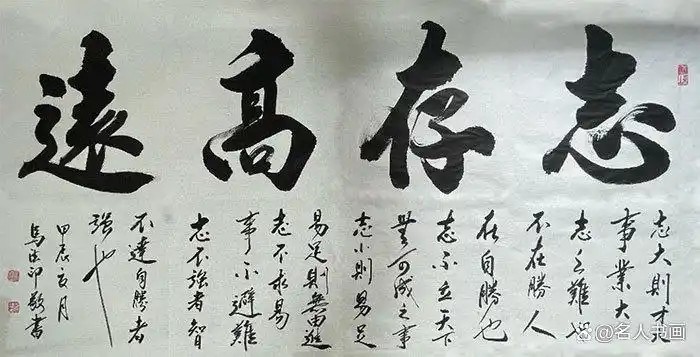 志存高遠
志大則才大
事業大
志之難也
不在勝人
在自勝也
志不立天下
無可成之事
志小則易足
易足則無由進
志不求易
事不避難
志不強者智
不達自勝者
強也
甲辰夏月
馬法印敬書
@名人书画